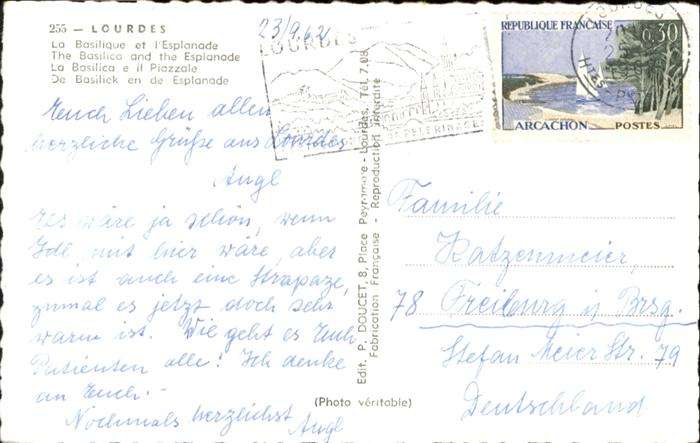 255 — LOURDES
La Basilique et l'Esplanade
The Basilica and the Esplanade
La Basilica e il Piazzale
De Basiliek en de Esplanade
23/9.62
LOURDES
REPUBLIQUE FRANÇAISE
0,30
ARCACHON POSTES
Euch Lieben allen
herzliche Grüße aus Lourdes
Angl
Es wäre ja schön, wenn
Ida mit hier wäre, aber
es ist auch eine Strapaze,
zumal es jetzt doch sehr
warm ist. Wie geht es Euch
Patienten alle! Ich denke
an Euch.-
Nochmals herzlichst
Angl
Edit. P. DOUCET, 8, Place Peyramale - Lourdes, Tél. 7.08
Fabrication Française - Reproduction interdite
(Photo véritable)
Familie
Katzenmeier,
78 Freiburg i/ Brsg.
Stefan Meier Str. 79
Deutschland